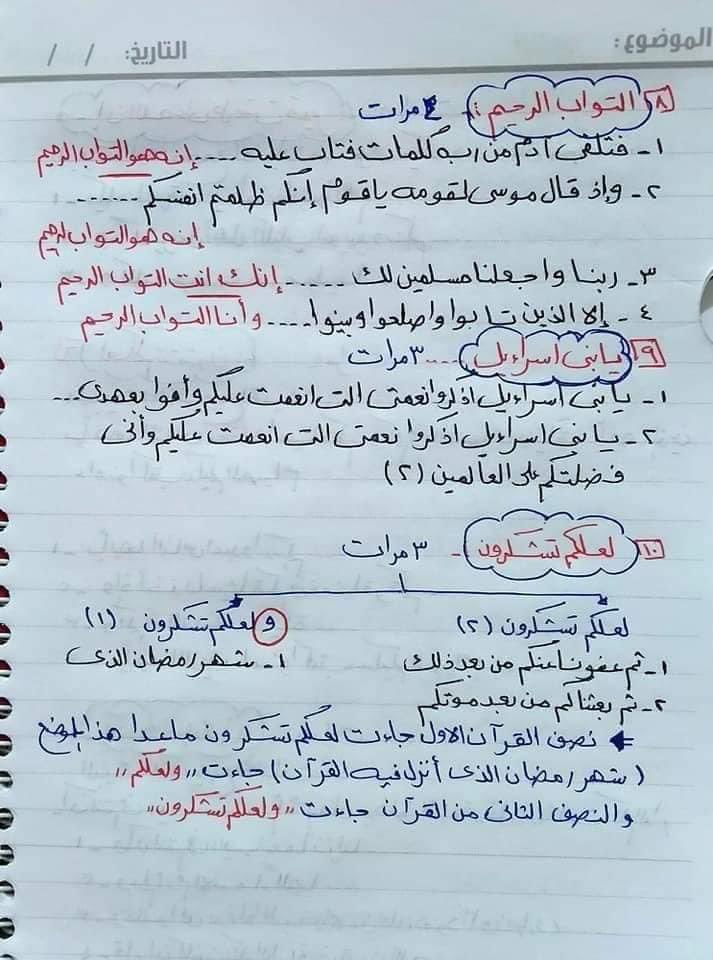 الموضوع: التاريخ: / /
٨ التواب الرحيم: ٤ مرات
١- فتلقى آدم من ربه كلمات فتاب عليه .... إنه هو التواب الرحيم
٢- وإذ قال موسى لقومه ياقوم إنكم ظلمتم انفسكم ......
إنه هو التواب الرحيم
٣- ربنا واجعلنا مسلمين لك ..... إنك انت التواب الرحيم
٤- إلا الذين تابوا واصلحوا وبينوا .... وأنا التواب الرحيم
٩ يابنى اسراءيل .... ٣ مرات
١- يابنى اسراءيل اذكروا نعمتى التى انعمت عليكم وأفوا بعهدى ...
٢- يابنى اسراءيل اذكروا نعمتى التى انعمت عليكم وأنى
فضلتكم على العالمين (٢)
١٠ لعلكم تشكرون - ٣ مرات
لعلكم تشكرون (٢) ولعلكم تشكرون (١)
١- ثم عفونا عنكم من بعد ذلك ١- شهر رمضان الذى
٢- ثم بعثناكم من بعد موتكم
نصف القرآن الاول جاءت لعلكم تشكرون ماعدا هذا الموضع
(شهر رمضان الذى أنزل فيه القرآن) جاءت ,,ولعلكم,,
والنصف الثانى من القرآن جاءت ,,ولعلكم تشكرون,,